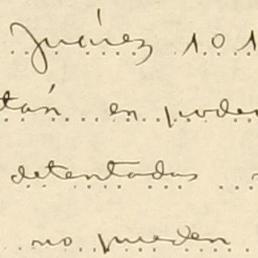 Juárez 101
tán en poder
detentadas
no pueden